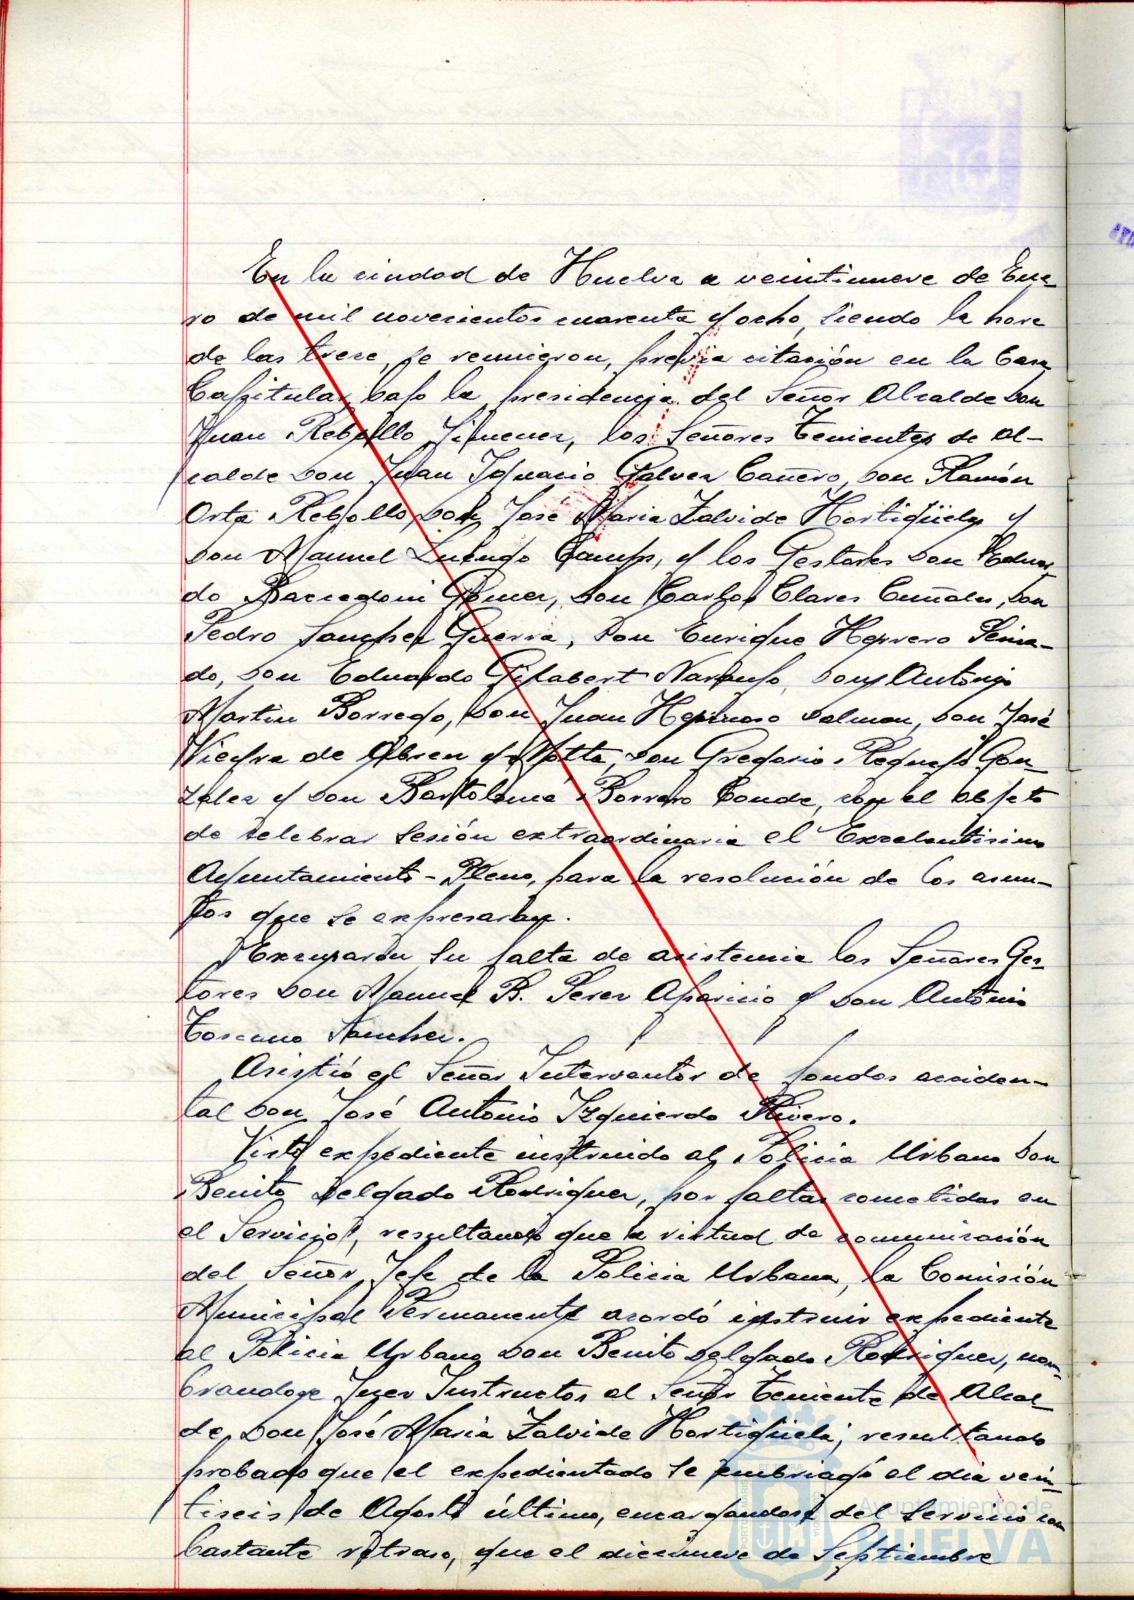 En la ciudad de Huelva a veintinueve de Ene-
ro de mil novecientos cuarenta y ocho, siendo la hora
de las trece, se reunieron, previa citación en la Casa
Capitular bajo la presidencia del Señor Alcalde Don
Juan Rebollo Jimenez, los Señores Tenientes de Al-
calde Don Juan Ignacio Galvez Cañero, Don Ramón
Orta Rebollo, Don José Maria Zalvide Hortigüela y
Don Manuel Luengo, y los Gestores Don Eduar-
do Gomez, Don Carlos Clares, Don
Pedro Sanchez Guerra, Don Enrique Herrero Peina-
do, Don Eduardo Gilabert Naranjo, Don Antonio
Martin Borrego, Don Juan Hermoso Dalman, Don José
Vieyra de Abreu y Motta, Don Gregorio Requejo Gon-
zalez y Don Bartolomé Borrero Conde, con el objeto
de celebrar sesión extraordinaria el Excelentisimo
Ayuntamiento-Pleno, para la resolución de los asun-
tos que se expresaran.
Excusaron su falta de asistencia los Señores Ges-
tores Don Manuel B. Perez Aparicio y Don Antonio
Toscano Sanchez.
Asistió el Señor Interventor de fondos acciden-
tal Don José Antonio Izquierdo Rivero.
Visto expediente instruido al Policia Urbano Don
Benito Delgado Rodriguez, por faltas cometidas en
el Servicio, resultando que a virtud de comunicación
del Señor Jefe de la Policia Urbana, la Comisión
Municipal Permanente acordó instruir expediente
al Policia Urbano Don Benito Delgado Rodriguez, nom-
brandose Juez Instructor al Señor Teniente de Alcal
de Don José Maria Zalvide Hortigüela; resultando
probado que el expedientado se embriagó el dia vein-
tiseis de Agosto último, encargandose del Servicio con
bastante retraso, que el diecinueve de Septiembre
Ayuntamiento de
HUELVA